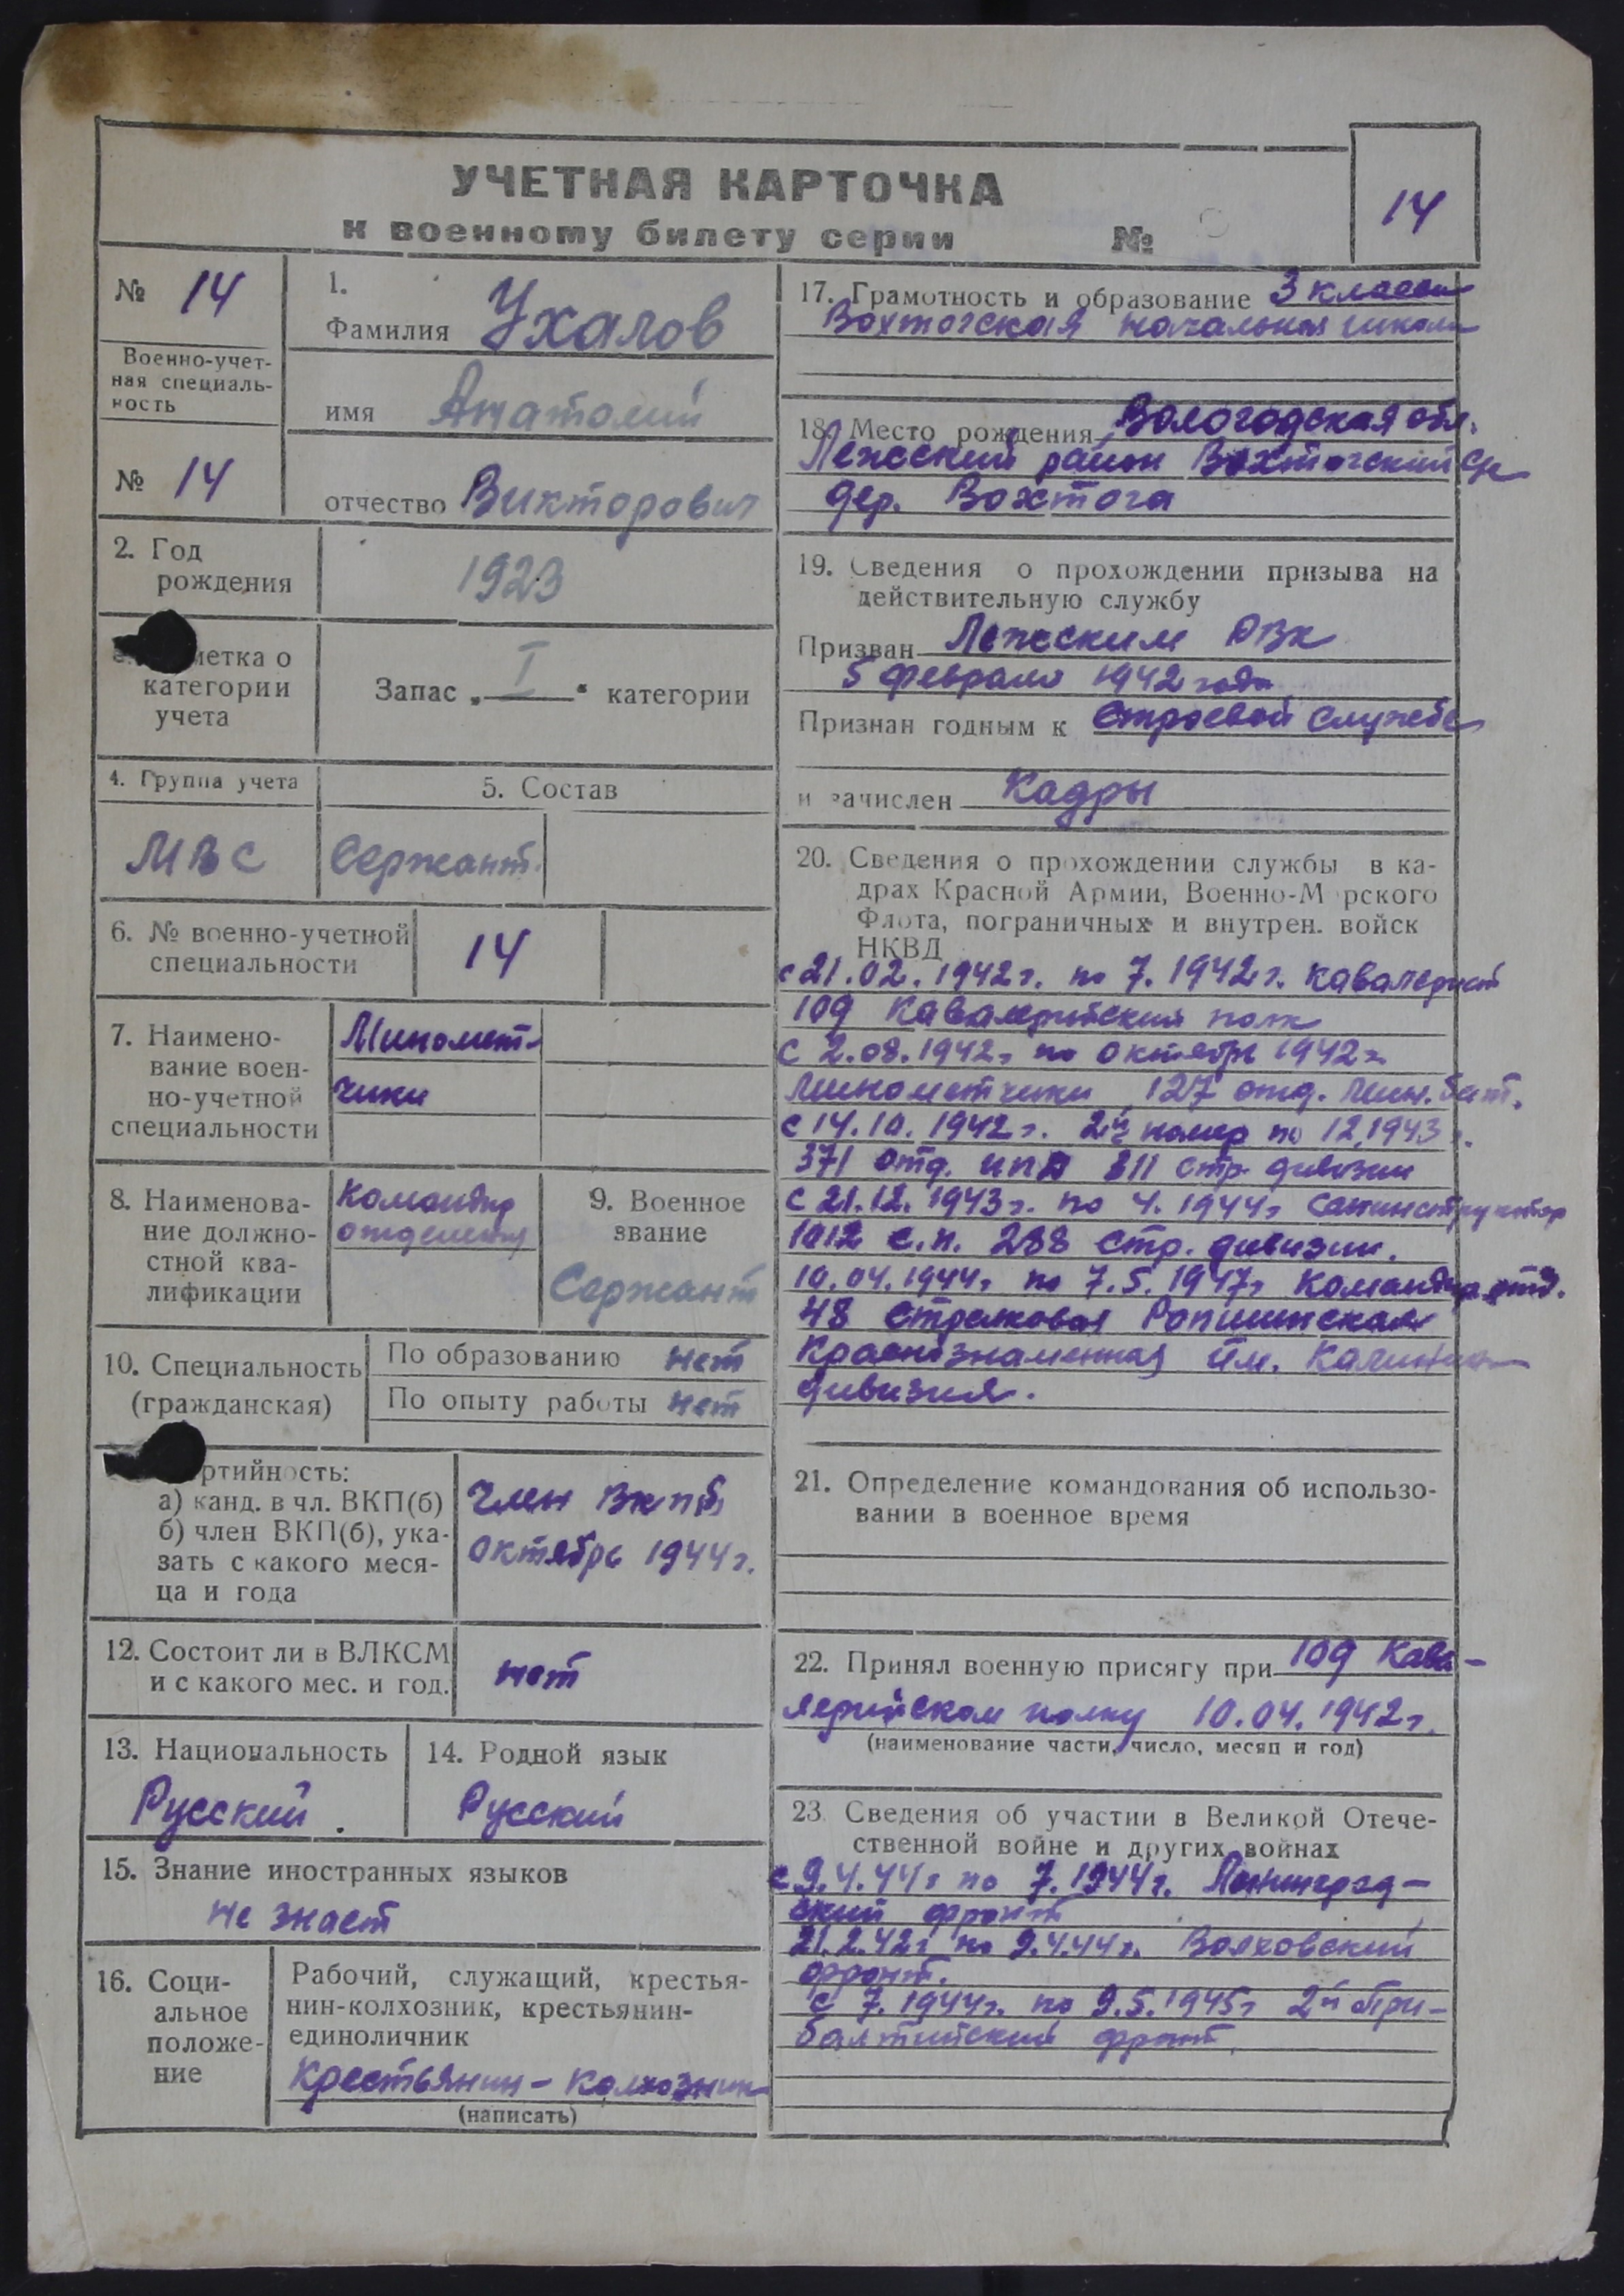 УЧЕТНАЯ КАРТОЧКА
к военному билету серии №
14
№ 14
Военно-учет-
ная специаль-
ность
№ 14
1.
Фамилия Ухалов
имя Анатолий
отчество Викторович
2. Год
рождения
1923
метка о
категории
учета
Запас „ I “ категории
4. Группа учета
МВС
5. Состав
Сержант.
6. № военно-учетной
специальности
14
7. Наимено-
вание воен-
но-учетной
специальности
Миномет-
чики
8. Наименова-
ние должно-
стной ква-
лификации
Командир
отделения
9. Военное
звание
Сержант
10. Специальность
(гражданская)
По образованию нет
По опыту работы нет
ртийность:
а) канд. в чл. ВКП(б)
б) член ВКП(б), ука-
зать с какого меся-
ца и года
Член ВКП(б)
октябрь 1944 г.
12. Состоит ли в ВЛКСМ
и с какого мес. и год.
нет
13. Национальность
Русский.
14. Родной язык
Русский
15. Знание иностранных языков
не знает
16. Соци-
альное
положе-
ние
Рабочий, служащий, крестья-
нин-колхозник, крестьянин-
единоличник
Крестьянин-колхозник
(написать)
17. Грамотность и образование 3 класса
Вохтогская начальная школа
18. Место рождения Вологодская обл.
Лежский район Вохтогский с/с
дер. Вохтога
19. Сведения о прохождении призыва на
действительную службу
Призван Лежским РВК
5 февраля 1942 года
Признан годным к строевой службе
и зачислен Кадры
20. Сведения о прохождении службы в ка-
драх Красной Армии, Военно-Морского
Флота, пограничных и внутрен. войск
НКВД
с 21.02.1942 г. по 7.1942 г. кавалерист
109 Кавалерийский полк
с 2.08.1942 г. по октябрь 1942 г.
минометчики 127 отд. мин. бат.
с 14.10.1942 г. 2й номер по 12.1943 г.
371 отд. 311 стр. дивизии
с 21.12.1943 г. по 4.1944 г. санинструктор
1012 с.п. 288 стр. дивизии.
10.04.1944 г. по 7.5.1947 г. Командир отд.
48 стрелковая Ропшинская
Краснознаменная им. Калинина
дивизия.
21. Определение командования об использо-
вании в военное время
22. Принял военную присягу при 109 Кава-
лерийском полку 10.04.1942 г.
(наименование части, число, месяц и год)
23. Сведения об участии в Великой Отече-
ственной войне и других войнах
с 9.4.44 г. по 7.1944 г. Ленинград-
ский фронт
21.2.42 г. по 9.4.44 г. Волховский
фронт.
с 7.1944 г. по 9.5.1945 г. 2й При-
балтийский фронт.